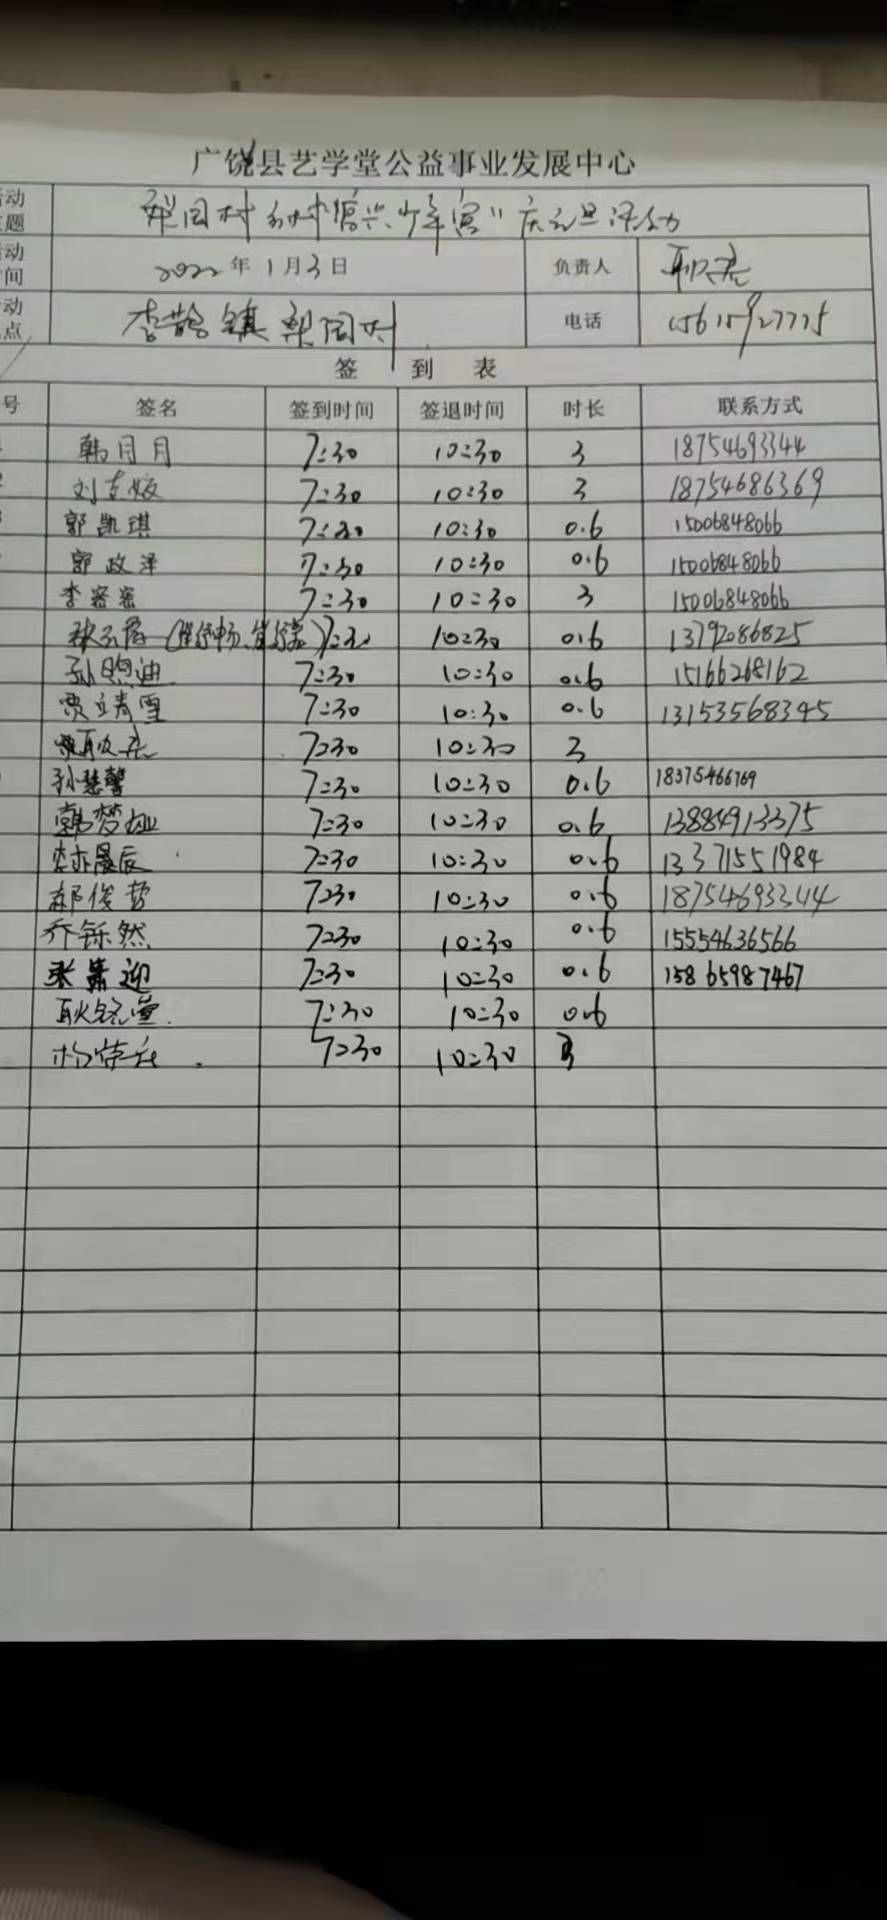 广饶县艺学堂公益事业发展中心
动 题 村乡村振兴少年宫"庆元旦活动
动 间 2022年1月3日 负责人
动 点 李鹊镇 村 电话 15615927775
签 到 表
号 签名 签到时间 签退时间 时长 联系方式
韩月月 7:30 10:30 3 18754693344
刘 7:30 10:30 3 18754686369
郭凯琪 7:30 10:30 0.6 15006848066
郭政泽 7:30 10:30 0.6 15006848066
李密密 7:30 10:30 3 15006848066
7:30 10:30 0.6 13792086825
孙煦迪 7:30 10:30 0.6 15166268162
贾立青雪 7:30 10:30 0.6 13153568345
7:30 10:30 3
孙慧馨 7:30 10:30 0.6 18375466769
韩梦 7:30 10:30 0.6 13884913375
晨辰 7:30 10:30 0.6 13371551984
郝俊哲 7:30 10:30 0.6 18754693344
乔铄然 7:30 10:30 0.6 15554636566
迎 7:30 10:30 0.6 15865987467
耿铭萱 7:30 10:30 0.6
7:30 10:30 3